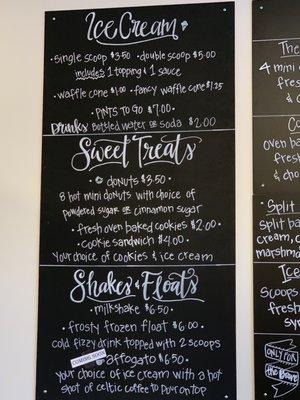 Ice Cream
• single scoop $3.50 • double scoop $5.00
includes 1 topping & 1 sauce
• waffle cone $1.00 • fancy waffle cone $1.25
• PINTS TO GO $7.00 •
Drinks: Bottled water or soda $2.00
Sweet Treats
• donuts $3.50 •
8 hot mini donuts with choice of
powdered sugar or cinnamon sugar
• fresh oven baked cookies $2.00 •
• cookie sandwich $4.00 •
Your choice of cookies & ice cream
Shakes & Floats
• milkshake $6.50 •
• frosty frozen float $6.00 •
cold fizzy drink topped with 2 scoops
COMING SOON affogato $6.50 •
your choice of ice cream with a hot
shot of celtic coffee to pour on top
The
4 mini
Co
oven ba
& cho
Split
Split ba
cream, c
marshm
Ice
Scoops
fresh
syr
ONLY FOR
the Brave